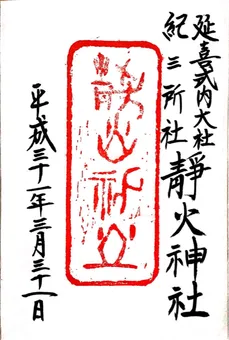 延喜式内大社
紀三所社
靜火神社
靜火神社
平成三十一年三月三十一日